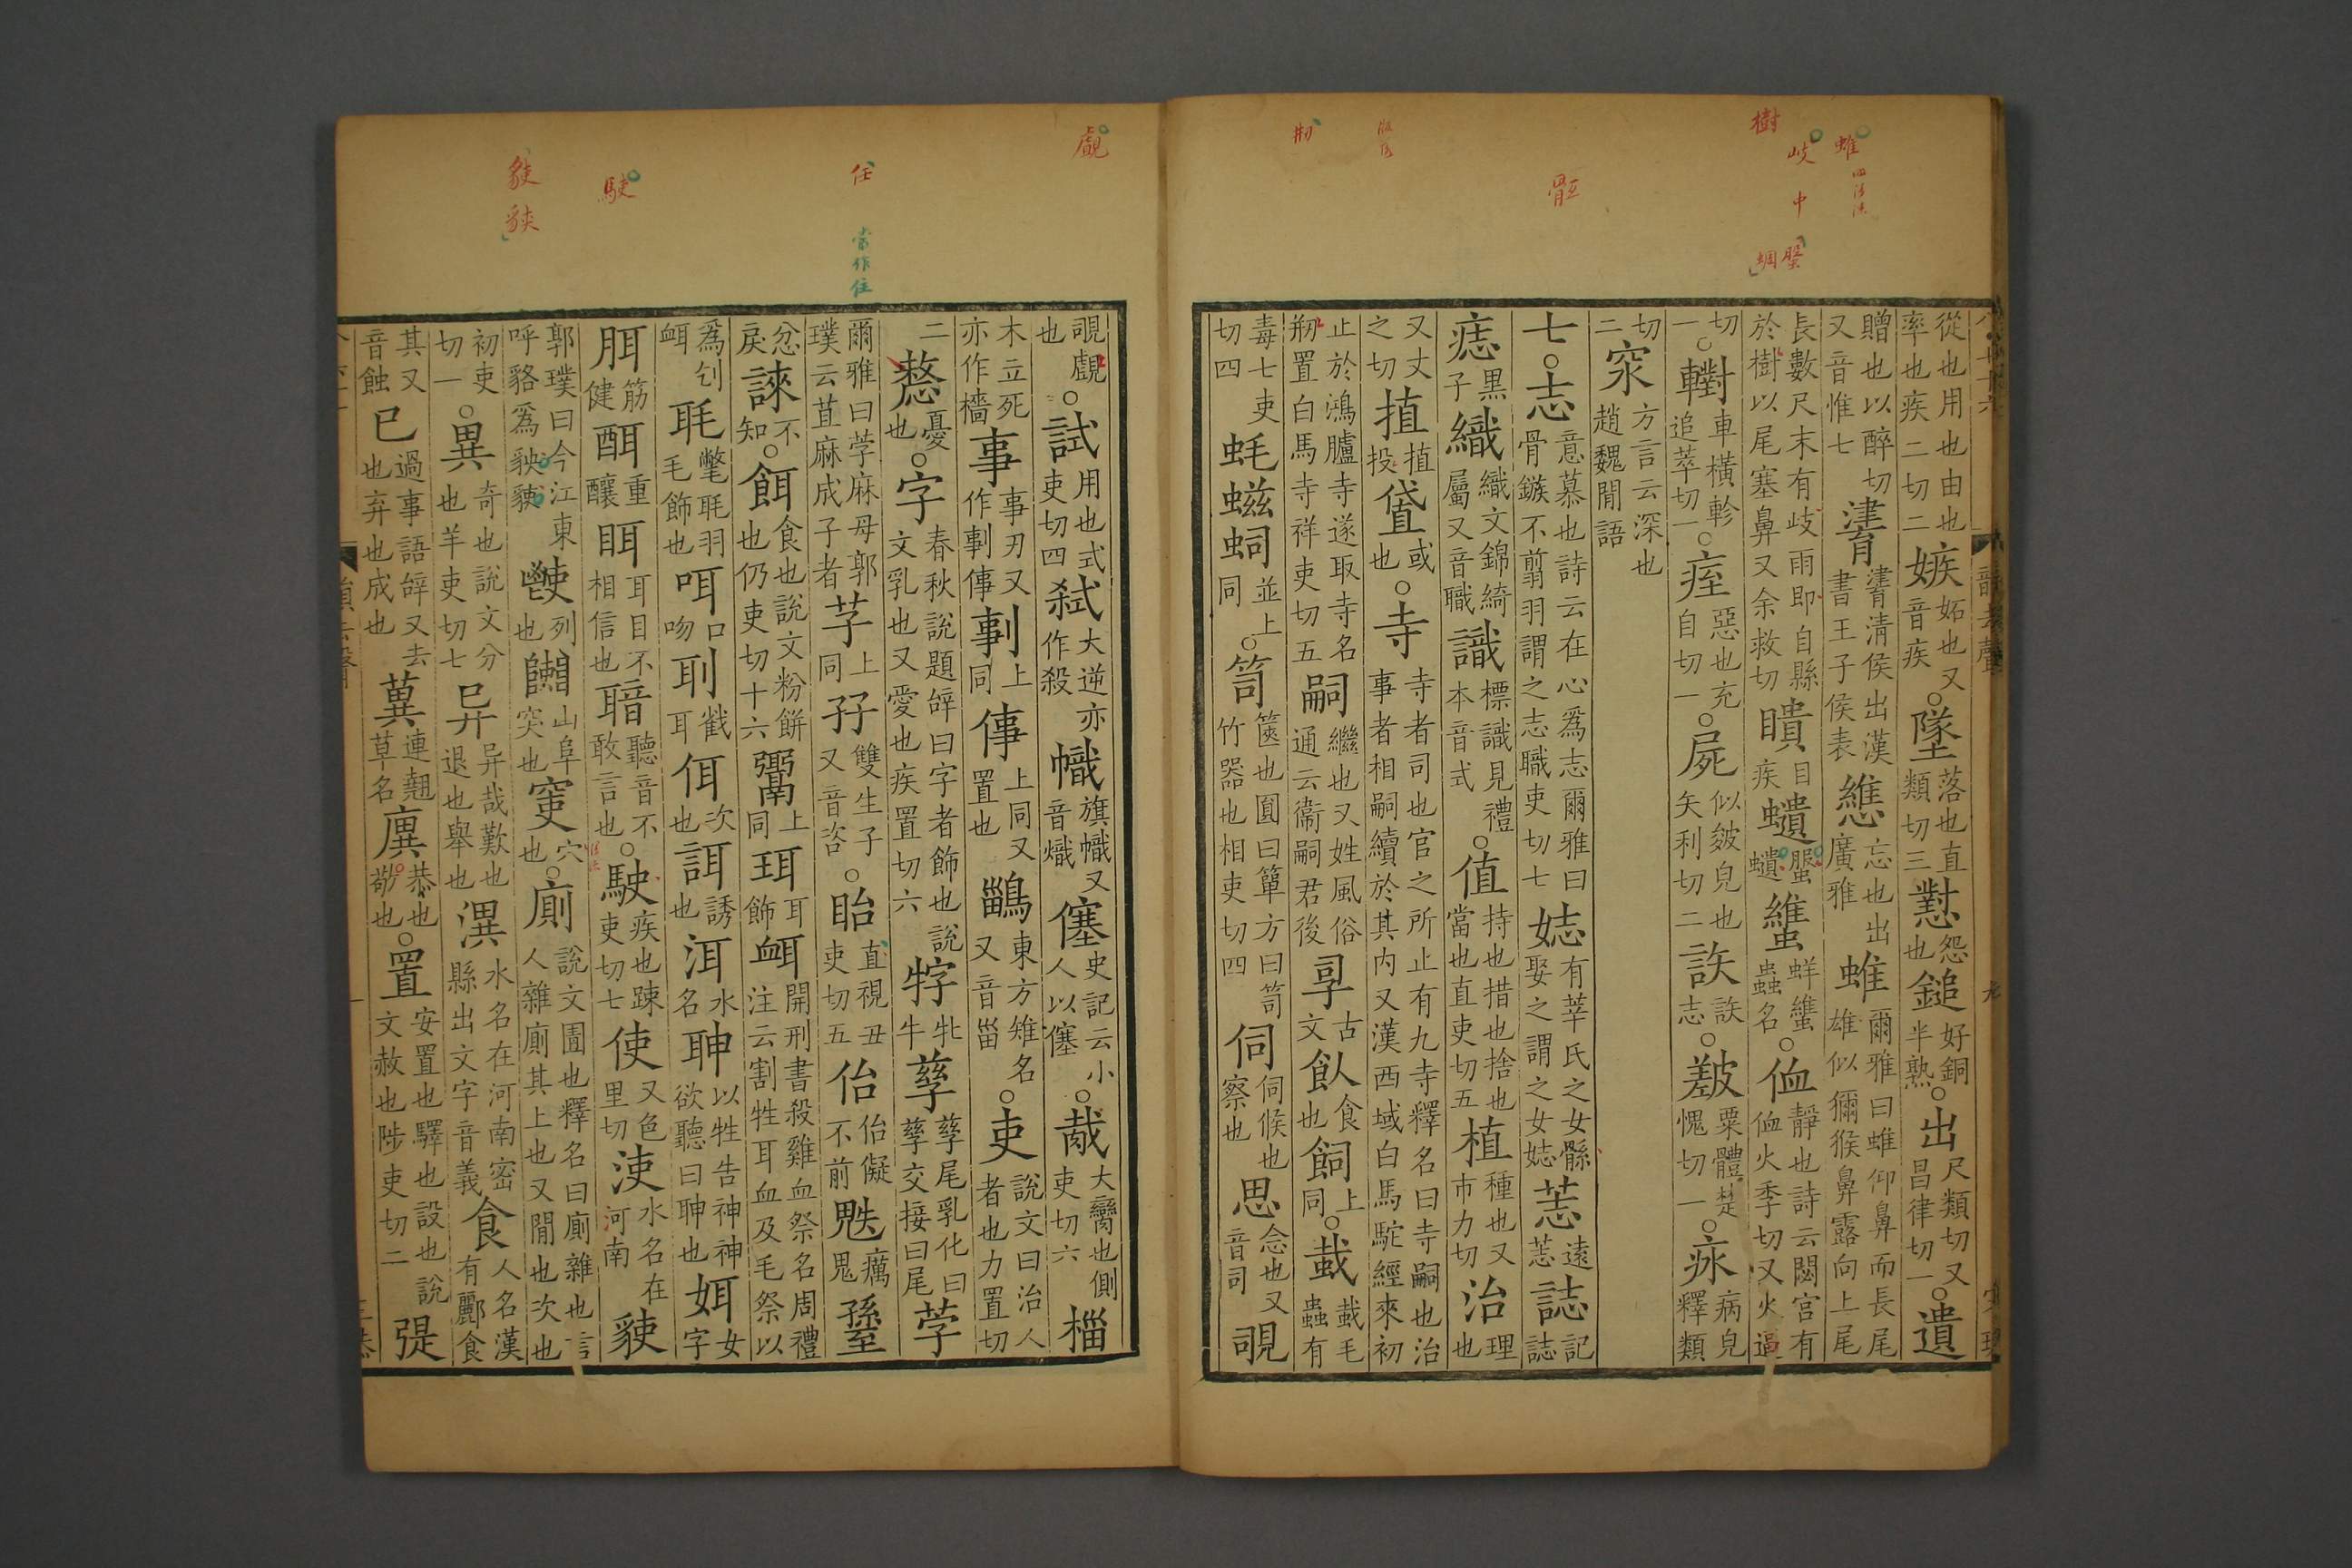 蜼
岐
中
樹
任
當作住
駛
從也用也由也率也疾二切二嫉妬也又音疾○墜落也直類切三懟怨也鎚好銅半熟○出尺類切又昌律切一○遺
贈也以醉切又音惟七𧗕𧗕清侯出漢書王子侯表㦣忘也出廣雅蜼爾雅曰蜼仰鼻而長尾雄似獼猴鼻露向上尾
長數尺末有岐雨即自縣於樹以尾塞鼻又余救切瞶目疾蠵𧓳蠵蠵蟲名○侐靜也詩云閟宮有侐火季切又火逼
切一○轛車橫軫追萃切一○痓惡也充自切一○屍似皴皃也矢利切二訣訣志○㿱粟體愧切一○㾛病皃釋類
切二㴱方言云深也趙魏閒語
七○志意慕也詩云在心爲志爾雅曰骨鏃不翦羽謂之志職吏切七娡有莘氏之女鯀娶之謂之女娡㤅遠㤅誌記誌
痣黑子織織文錦綺屬又音職識標識見禮本音式○值持也措也捨也當也直吏切五植種也又市力切治理也
又丈之切㨁植投㑭或也○寺寺者司也官之所止有九寺釋名曰寺嗣也治事者相嗣續於其内又漢西域白馬駝經來初
止於鴻臚寺遂取寺名剏置白馬寺祥吏切五嗣繼也又姓風俗通云衞嗣君後孠古文飤食也飼上同○蛓蛓毛蟲有
毒七吏切四蚝䗹蛓並上同○笥篋也圓曰簞方曰笥竹器也相吏切四伺伺候也察也思念也又音司覗
覗覰也○試用也式吏切四弒大逆亦作殺幟旗幟又音熾㒊史記云小人以㒊○胾大臠也側吏切六椔
木立死亦作檣事事刃又作剚倳剚上同倳上同又置也鶅東方雉名又音甾○吏說文曰治人者也力置切
二㦤憂也○字春秋說題辝曰字者飾也說文乳也又愛也疾置切六牸牝牛孳孳尾乳化曰孳交接曰尾荢
爾雅曰荢麻母郭璞云苴麻成子者芓上同孖雙生子又音咨○眙直視丑吏切五佁佁儗不前魅癘鬼𡨜
忿戾誺不知○餌食也說文粉餅也仍吏切十六𩱓上同珥耳飾衈開刑書殺雞血祭名周禮注云割牲耳血及毛祭以
爲刉衈毦氅毦羽毛飾也咡口吻刵截耳佴次也誀誘也洱水名聏以牲告神神欲聽曰聏也㛅女字
胹筋健酭重釀眲耳目不相信也䎶聽音不敢言也○駛疾也踈吏切七使又色里切浬水名在河南貄
郭璞曰今江東呼貉爲𧲲貄䶡列也𨽥山阜突也窔穴也○廁說文圊也釋名曰廁雜也言人雜廁其上也又閒也次也
初吏切一○異奇也說文分也羊吏切七异异哉歎也退也舉也潩水名在河南密縣出文字音義食人名漢有酈食
其又音蝕已過事語辝又去也弃也成也䔬連翹草名廙恭也敬也○置安置也驛也設也說文赦也陟吏切二㨖